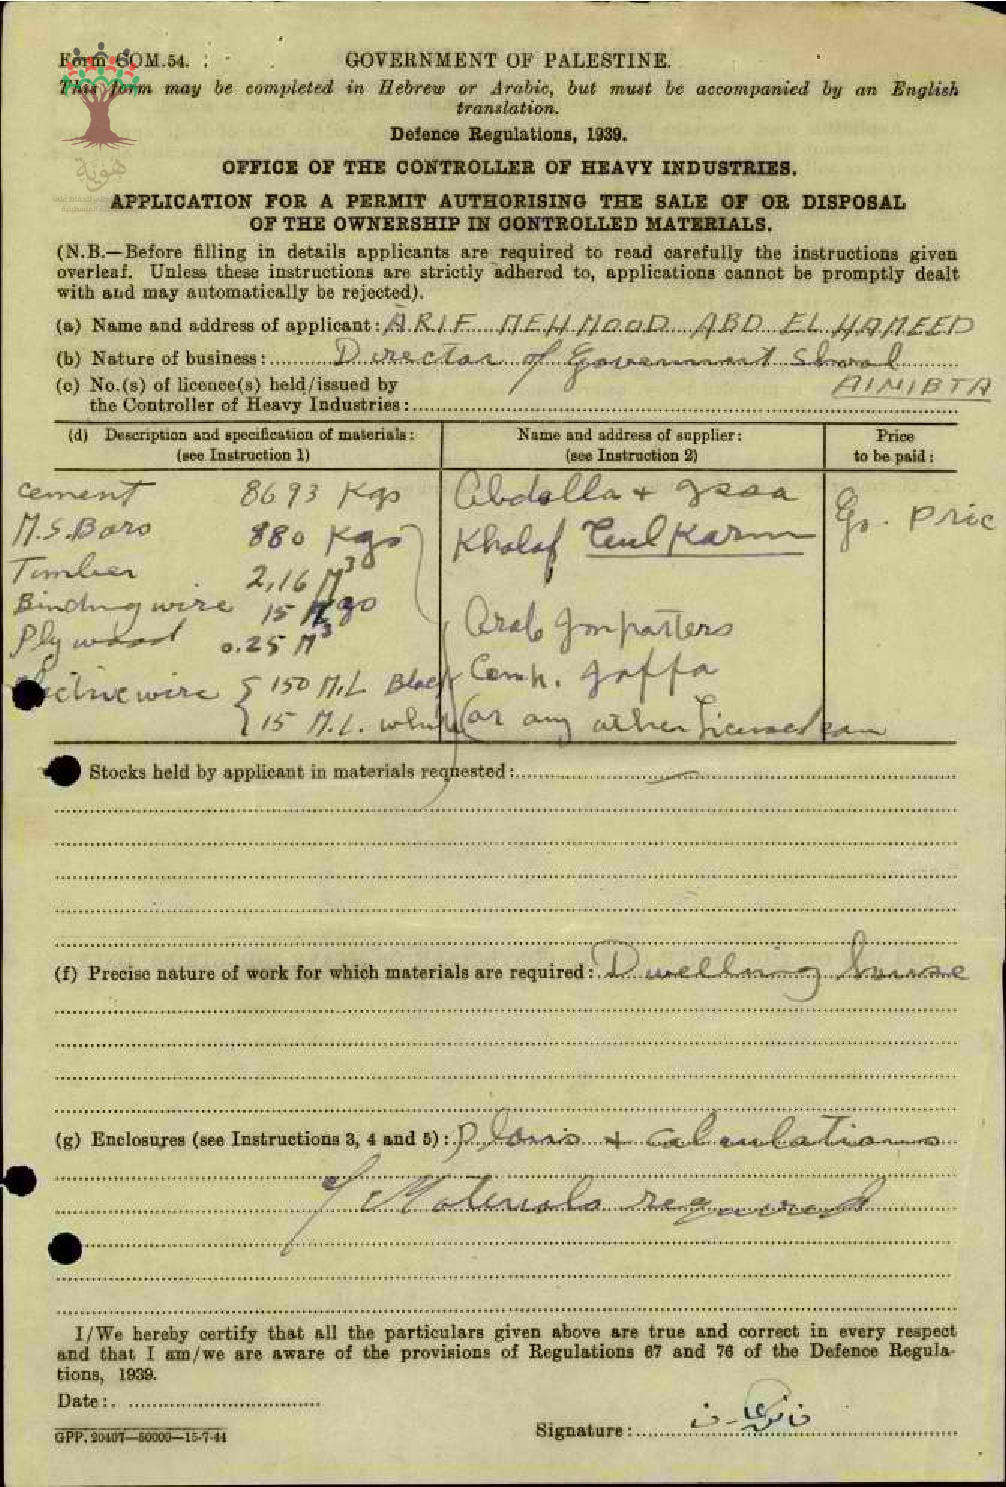 Form COM.54.
GOVERNMENT OF PALESTINE.
This form may be completed in Hebrew or Arabic, but must be accompanied by an English
translation.
Defence Regulations, 1939.
هوية
OFFICE OF THE CONTROLLER OF HEAVY INDUSTRIES.
APPLICATION FOR A PERMIT AUTHORISING THE SALE OF OR DISPOSAL
OF THE OWNERSHIP IN CONTROLLED MATERIALS.
(N.B.—Before filling in details applicants are required to read carefully the instructions given
overleaf. Unless these instructions are strictly adhered to, applications cannot be promptly dealt
with and may automatically be rejected).
(a) Name and address of applicant: ARIF MEHMOOD ABD EL HAMEED
(b) Nature of business: Director of Government School
AINIBTA
(c) No.(s) of licence(s) held/issued by
the Controller of Heavy Industries:
(d) Description and specification of materials:
(see Instruction 1)
Name and address of supplier:
(see Instruction 2)
Price
to be paid:
cement 8693 Kgs
M.S. Bars 880 Kgs
Timber 2,16 M3
Binding wire 15 Kgs
Plywood 0.25 M3
electric wire { 150 M.L. Black
15 M.L. white
Abdalla + Issa
Khalaf Tul Karm
Arab
Comp. Jaffa
or any other
Go. Pric
Stocks held by applicant in materials requested:
(f) Precise nature of work for which materials are required: Dwelling house
(g) Enclosures (see Instructions 3, 4 and 5): Plans + calculations
of Materials required
I/We hereby certify that all the particulars given above are true and correct in every respect
and that I am/we are aware of the provisions of Regulations 67 and 76 of the Defence Regula-
tions, 1939.
Date:
Signature:
GPP. 20407—50000—15-7-44